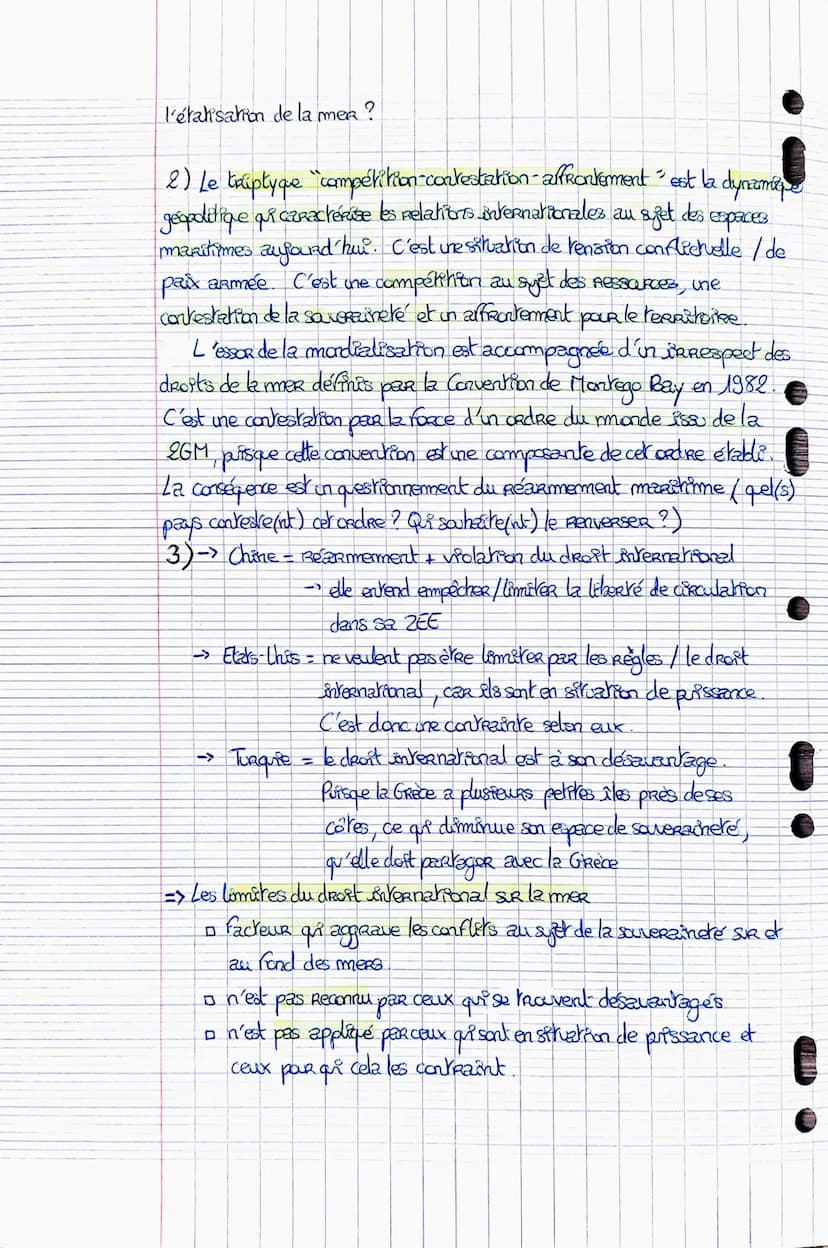 l'étatisation de la mer ?
2) Le triptyqe "compétition-contestation-affrontement" est la dynamiqe
géopolitiqe qi caractérise les relations internationales au sujet des espaces
maritimes aujourd'hui. C'est une situation de tension conflictuelle / de
paix armée. C'est une compétition au sujet des ressources, une
contestation de la souveraineté et un affrontement pour le territoire.
L'essor de la mondialisation est accompagnée d'un irrespect des
droits de la mer définis par la Convention de Montego Bay en 1982.
C'est une contestation par la force d'un ordre du monde issu de la
2GM, puisque cette convention est une composante de cet ordre établi.
La conséqence est un questionnement du réarmement maritime (qel(s)
pays conteste(nt) cet ordre ? Qi souhaite(nt) le renverser ?)
3) → Chine = réarmement + violation du droit international
→ elle entend empêcher/limiter la liberté de circulation
dans sa ZEE
→ Etats-Unis = ne veulent pas être limiter par les règles / le droit
international, car ils sont en situation de puissance.
C'est donc une contrainte selon eux.
→ Turquie = le droit international est à son désavantage.
Puisque la Grèce a plusieurs petites îles près de ses
côtes, ce qi diminue son espace de souveraineté,
qu'elle doit partager avec la Grèce
=> Les limites du droit international sur la mer
▫ facteur qi aggrave les conflits au sujet de la souveraineté sur et
au fond des mers.
▫ n'est pas reconnu par ceux qui se trouvent désavantagés
▫ n'est pas appliqé par ceux qi sont en situation de puissance et
ceux pour qi cela les contraint.